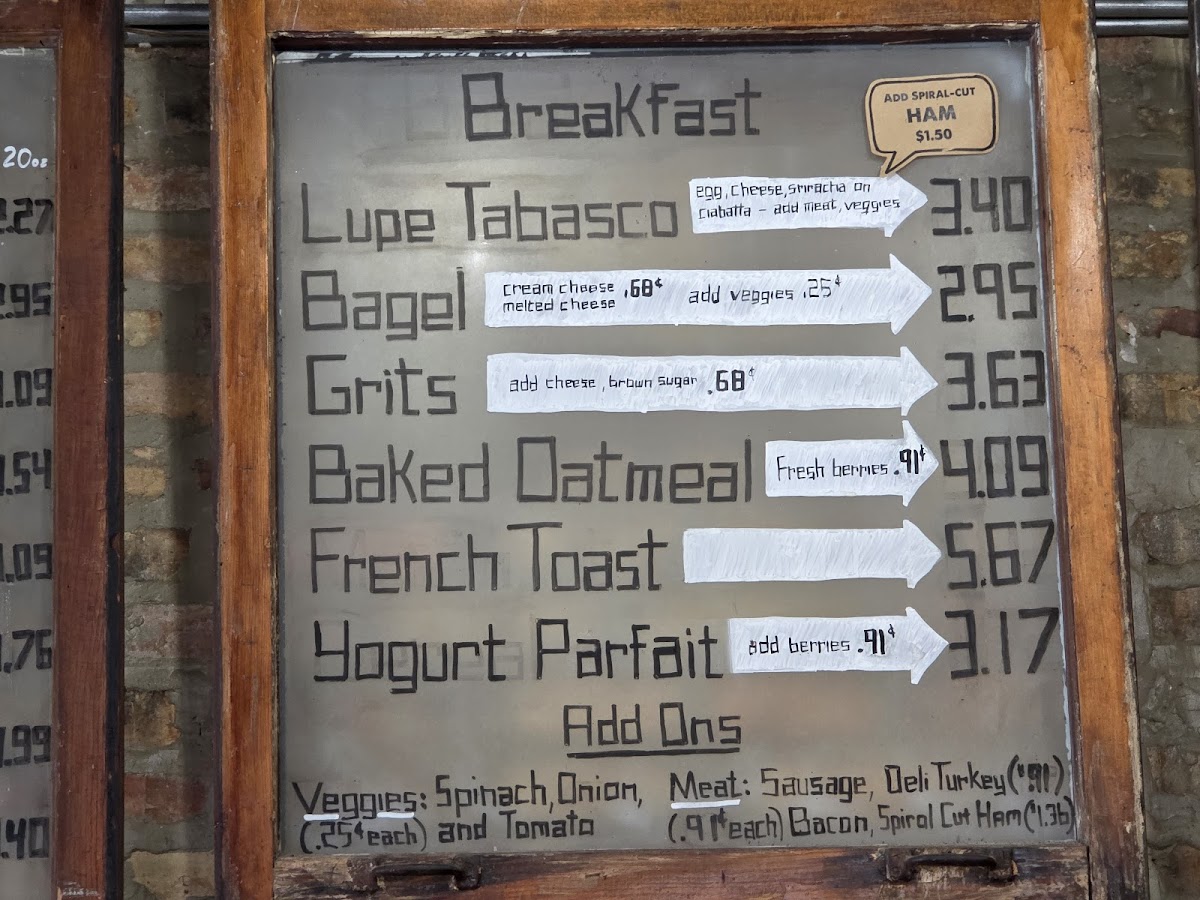 Breakfast
ADD SPIRAL-CUT
HAM
$1.50
Lupe Tabasco
egg, cheese, sriracha on
ciabatta - add meat, veggies
3.40
Bagel
cream cheese .68¢ add veggies .25¢
melted cheese
2.95
Grits
add cheese, brown sugar .68¢
3.63
Baked Oatmeal
Fresh berries .91¢
4.09
French Toast
5.67
Yogurt Parfait
add berries .91¢
3.17
Add Ons
Veggies: Spinach, Onion,
(.25¢ each) and Tomato
Meat: Sausage, Deli Turkey (.91)
(.91¢ each) Bacon, Spiral Cut Ham (1.36)
20oz
2.27
2.95
1.09
1.54
1.09
1.76
1.99
.40